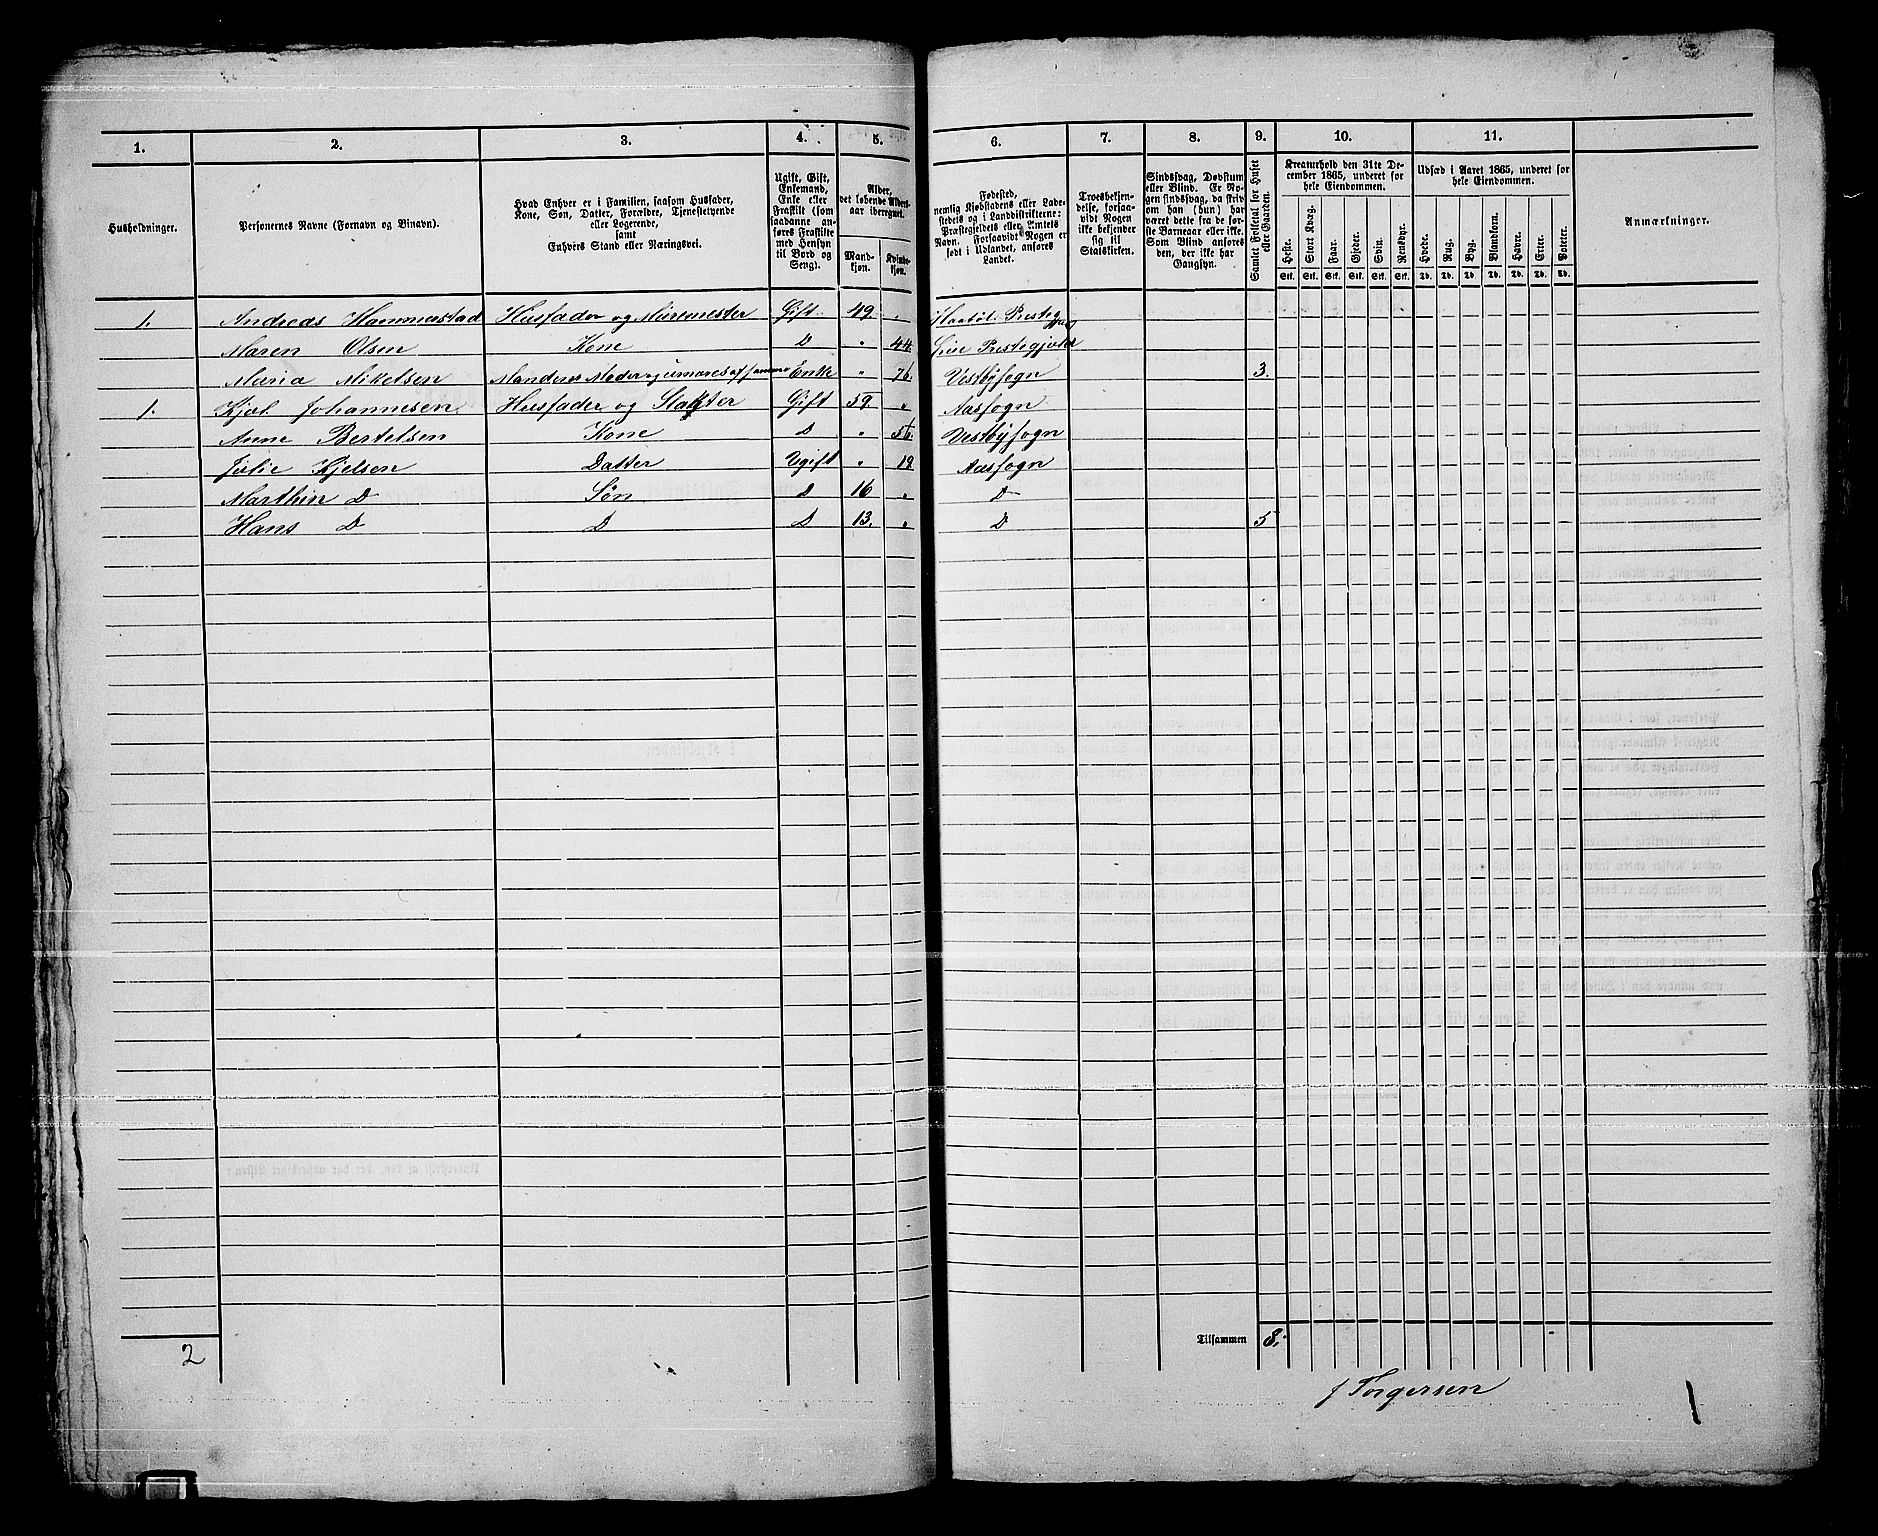 1. 2. 3. 4. 5. 6. 7. 8. 9. 10. 11.
Husholdninger.
Personernes Navne (Fornavn og Binavn).
Hvad Enhver er i Familien, saasom Husfader,
Kone, Søn, Datter, Forældre, Tjenestetyende
eller Logerende,
samt
Enhvers Stand eller Næringsvei.
Ugift, Gift,
Enkemand,
Enke eller
Fraskilt (som
saadanne an-
føres Fraskilte
med Hensyn
til Bord og
Seng).
Alder,
det løbende Alders-
aar iberegnet.
Mand-
kjøn.
Kvinde-
kjøn.
Fødested,
nemlig Kjøbstadens eller Lade-
stedets og i Landdistrikterne:
Præstegjeldets eller Amtets
Navn. Forsaavidt Nogen er
født i Udlandet, anføres
Landet.
Troesbekjen-
delse, forsaa-
vidt Nogen
ikke bekjender
sig til
Statskirken.
Sindssvag, Døvstum
eller Blind. Er No-
gen sindssvag, da skriv
om han (hun) har
været dette fra de før-
ste Barneaar eller ikke.
Som Blind anføres
den, der ikke har
Gangsyn.
Samlet Folketal for Huset
eller Gaarden.
Kreaturhold den 31te De-
cember 1865, underet for
hele Eiendommen.
Heste. Stort Kvæg. Faar. Gjeder. Svin. Rensdyr.
Stk. Stk. Stk. Stk. Stk. Stk.
Udsæd i Aaret 1865, underet for
hele Eiendommen.
Hvede. Rug. Byg. Blandkorn. Havre. Erter. Poteter.
Td. Td. Td. Td. Td. Td. Td.
Anmærkninger.
1. Andreas Hammerstad Husfader og Muremester Gift. 49 Prestegj
Maren Olsen Kone D " 44 Prestegjeld
Maria Mikelsen Mandens Moder Enke " 76 Vestbysogn 3.
1. Kjøl Johannesen Husfader og Slakter Gift 59. " Aassogn
Anne Bertelsen Kone D " 56. Vestbysogn
Julie Kjelsen Datter Ugift " 19 Aassogn
Marthin D Søn D 16 " D
Hans D D D 13. " D 5
Tilsammen 8.
2
J Torgersen
1